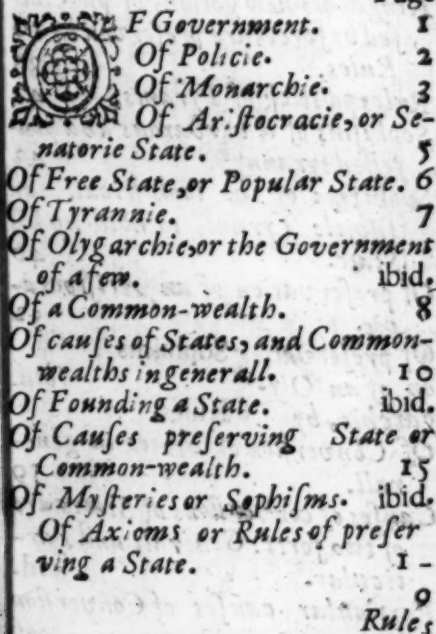 OF Government. 1
Of Policie. 2
Of Monarchie. 3
Of Ariſtocracie, or Se-
natorie State. 5
Of Free State, or Popular State. 6
Of Tyrannie. 7
Of Olygarchie, or the Government
of a few. ibid.
Of a Common-wealth. 8
Of cauſes of States, and Common-
wealths in generall. 10
Of Founding a State. ibid.
Of Cauſes preſerving State or
Common-wealth. 15
Of Myſteries or Sophiſms. ibid.
Of Axioms or Rules of preſer
ving a State. 1 -
9
Rules